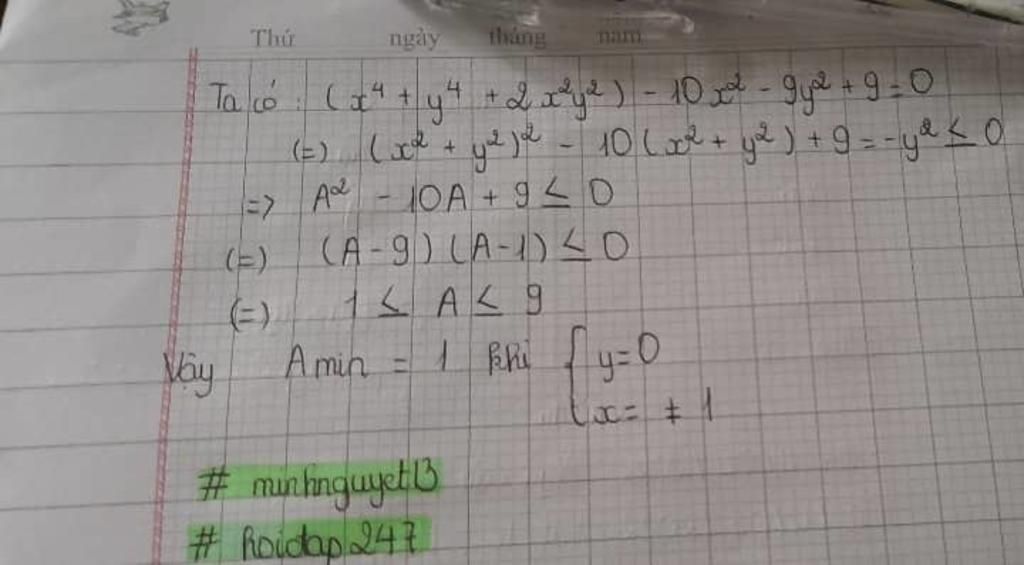 Thứ ngày tháng năm
Ta có: (x⁴ + y⁴ + 2x²y²) - 10x² - 9y² + 9 = 0
(=) (x² + y²)² - 10(x² + y²) + 9 = -y² ≤ 0
=> A² - 10A + 9 ≤ 0
(=) (A - 9)(A - 1) ≤ 0
(=) 1 ≤ A ≤ 9
Vậy A min = 1 khi { y = 0
x = ± 1
# minhnguyet13
# hoidap247